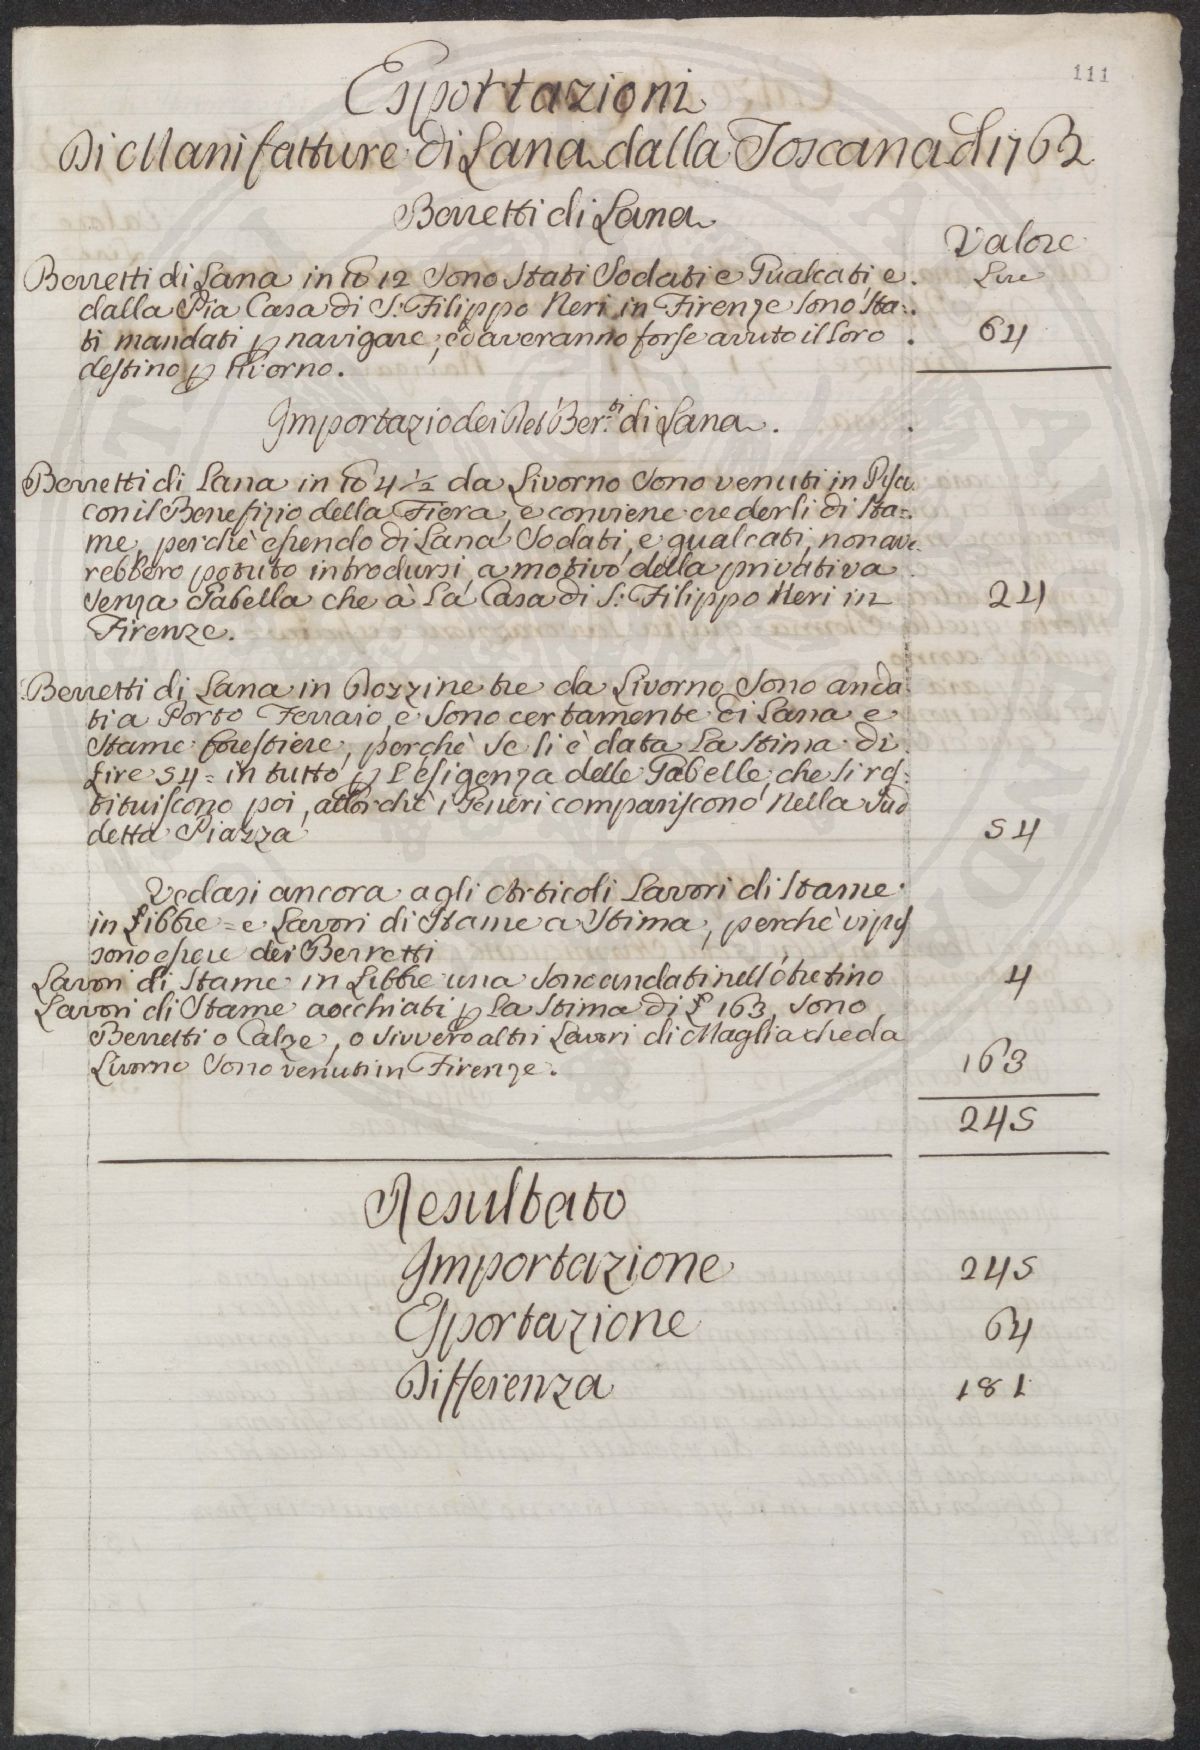 111
Esportazioni
Di Manifatture di Lana dalla Toscana d 1762
Berretti di Lana
Valore
Lire
Berretti di Lana in lb 12 sono stati Sodati e Gualcati, e
dalla Pia Casa di S: Filippo Neri in Firenze sono sta=
ti mandati p navigare, ed averanno forse avuto il loro
64
destino p livorno.
Importazio dei Det' Ber.ti di Lana.
Berretti di Lana in lb 4 1/2 da Livorno sono venuti in Pisa
con il Benefizio della Fiera, e conviene crederli di Sta=
me, perchè essendo di Lana Sodati, e gualcati, non ave
rebbero potuto introdursi, a motivo della privativa
senza Gabella che à La Casa di S: Filippo Neri in
24
Firenze.
Berretti di Lana in Dozzine tre da Livorno sono anda
ti a Porto Ferraio, e sono certamente di Lana e
Stame forestiere, perchè se li è data La Stima di
Lire 54= in tutto p l'esigenza delle Gabelle, che si res=
tituiscono poi, allorchè i Generi compariscono nella Sud
detta Piazza
54
Vedasi ancora agli Articoli Lavori di Stame
in Libbre = e Lavori di Stame a Stima, perchè vi pos
sono essere dei Berretti
Lavori di Stame in Libbre una sono andati nell'
4
Lavori di Stame aocchiati p La Stima di £ 163, sono
Berretti o Calze, o sivvero altri Lavori di Maglia che da
Livorno sono venuti in Firenze.
163
245
Resultato
Importazione 245
Esportazione 64
Differenza 181